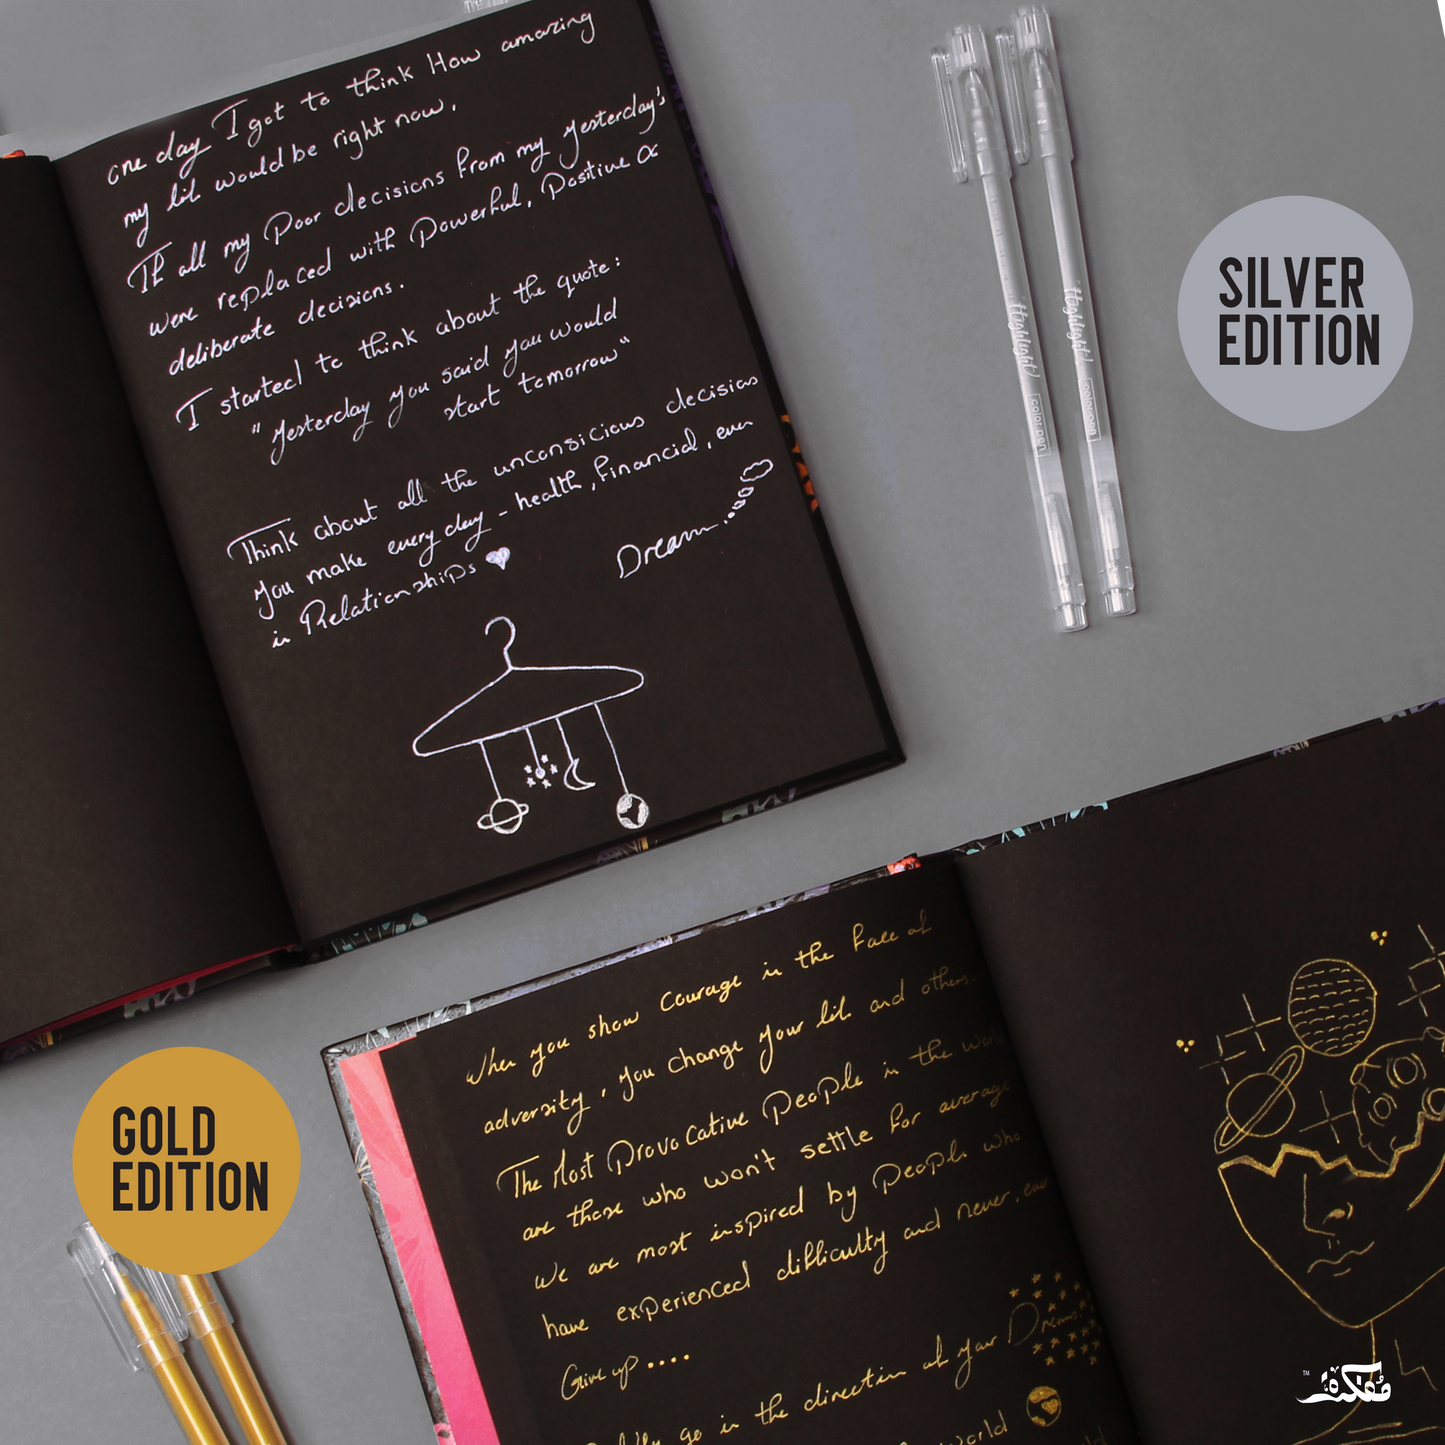 one day I got to think How amazing
my life would be right now.
If all my Poor decisions from my yesterday's
were replaced with Powerful, Positive &
deliberate decisions.
I started to think about the quote:
"yesterday you said you would
start tomorrow"
Think about all the unconsicious decisions
you make every day - health, financial, even
in Relationships
Dream...
Highlight
color pen
Highlight
color pen
SILVER
EDITION
GOLD
EDITION
When you show Courage in the face of
adversity, you change your life and others.
The Most Provocative People in the world
are those who won't settle for average
We are most inspired by People who
have experienced difficulty and never, ever
Give up....
go in the direction of your Dreams
world
مُفكرة
TM